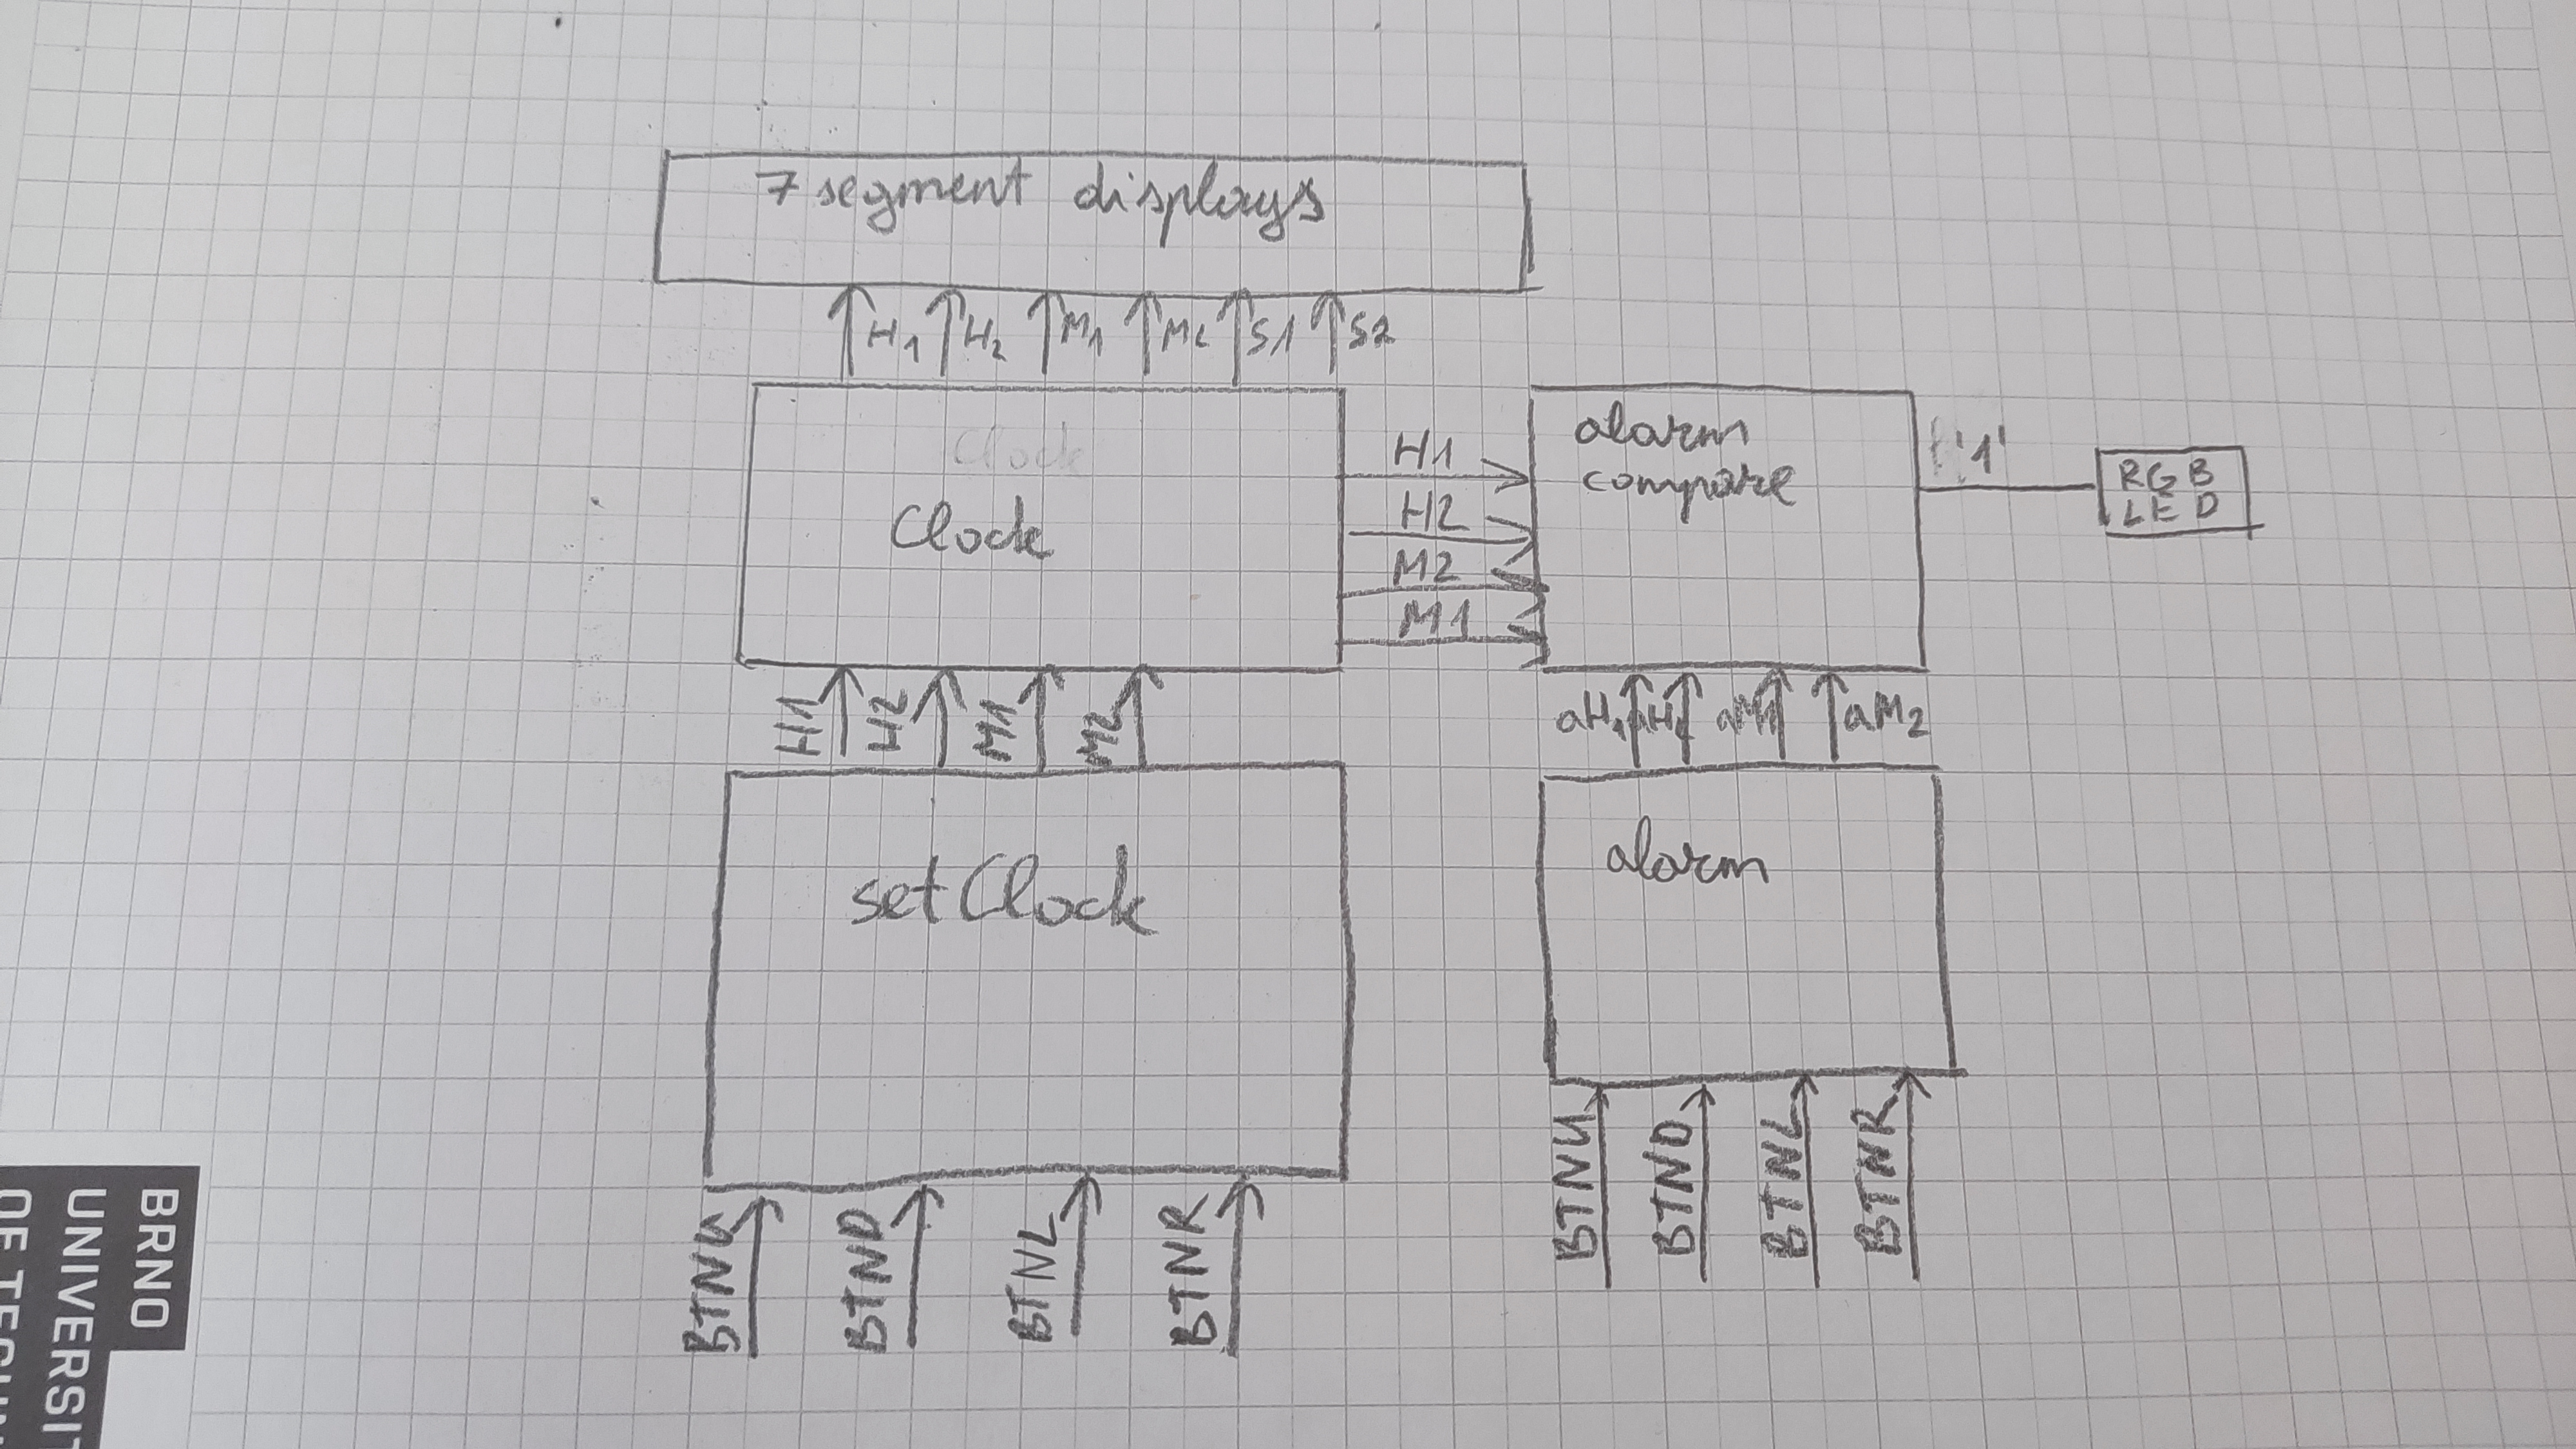 7 segment displays
H1 H2 M1 M2 S1 S2
Clock
Clock
H1
H2
M2
M1
alarm
compare
'1'
RGB
LED
H1 H2 M1 M2
aH1 aM1 aM2
setClock
alarm
BTNU BTND BTNL BTNR
BTNU BTND BTNL BTNR
BRNO
UNIVERSIT
OF TECHN